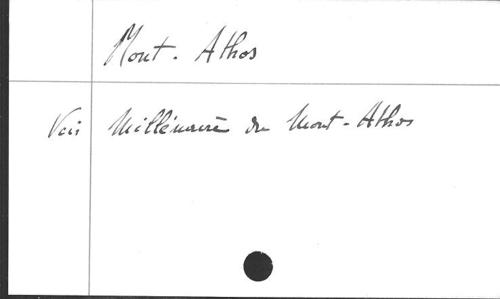 Mont-Athos
Voir Millénaire du Mont-Athos